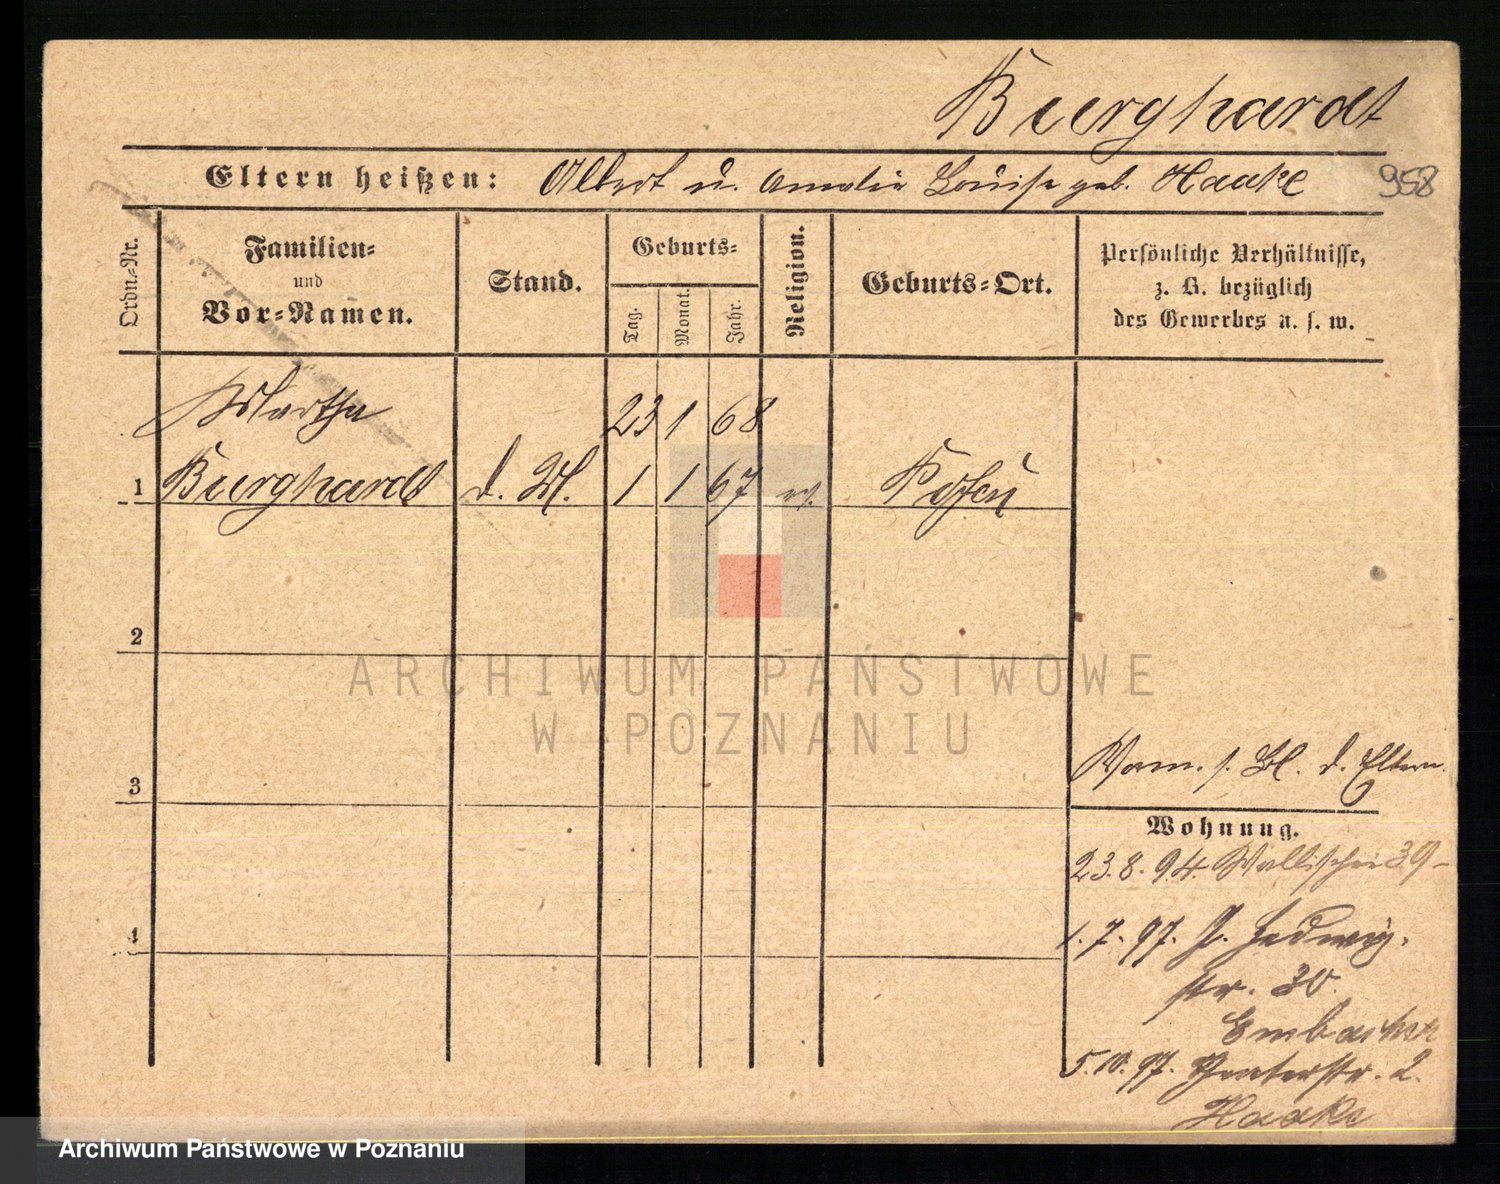 Burghardt
Eltern heißen: Albert u. Amalie Louise geb. Haake 958
Ordn.-Nr.
Familien-
und
Vor-Namen.
Stand.
Geburts-
Tag.
Monat.
Jahr.
Religion.
Geburts-Ort.
Persönliche Verhältnisse,
z. B. bezüglich
des Gewerbes u. s. w.
Martha 23 1 68
1 Burghardt d. Bl. 1 1 67 ev. Posen
2
3
4
Vorm. s. Bl. d. Eltern.
Wohnung.
23.8.94. Wallischei 39
1.7.97. J. Hedwig-
str. 30.
5.10.97. Theaterstr. 2.
Haake
ARCHIWUM PAŃSTWOWE
W POZNANIU
Archiwum Państwowe w Poznaniu